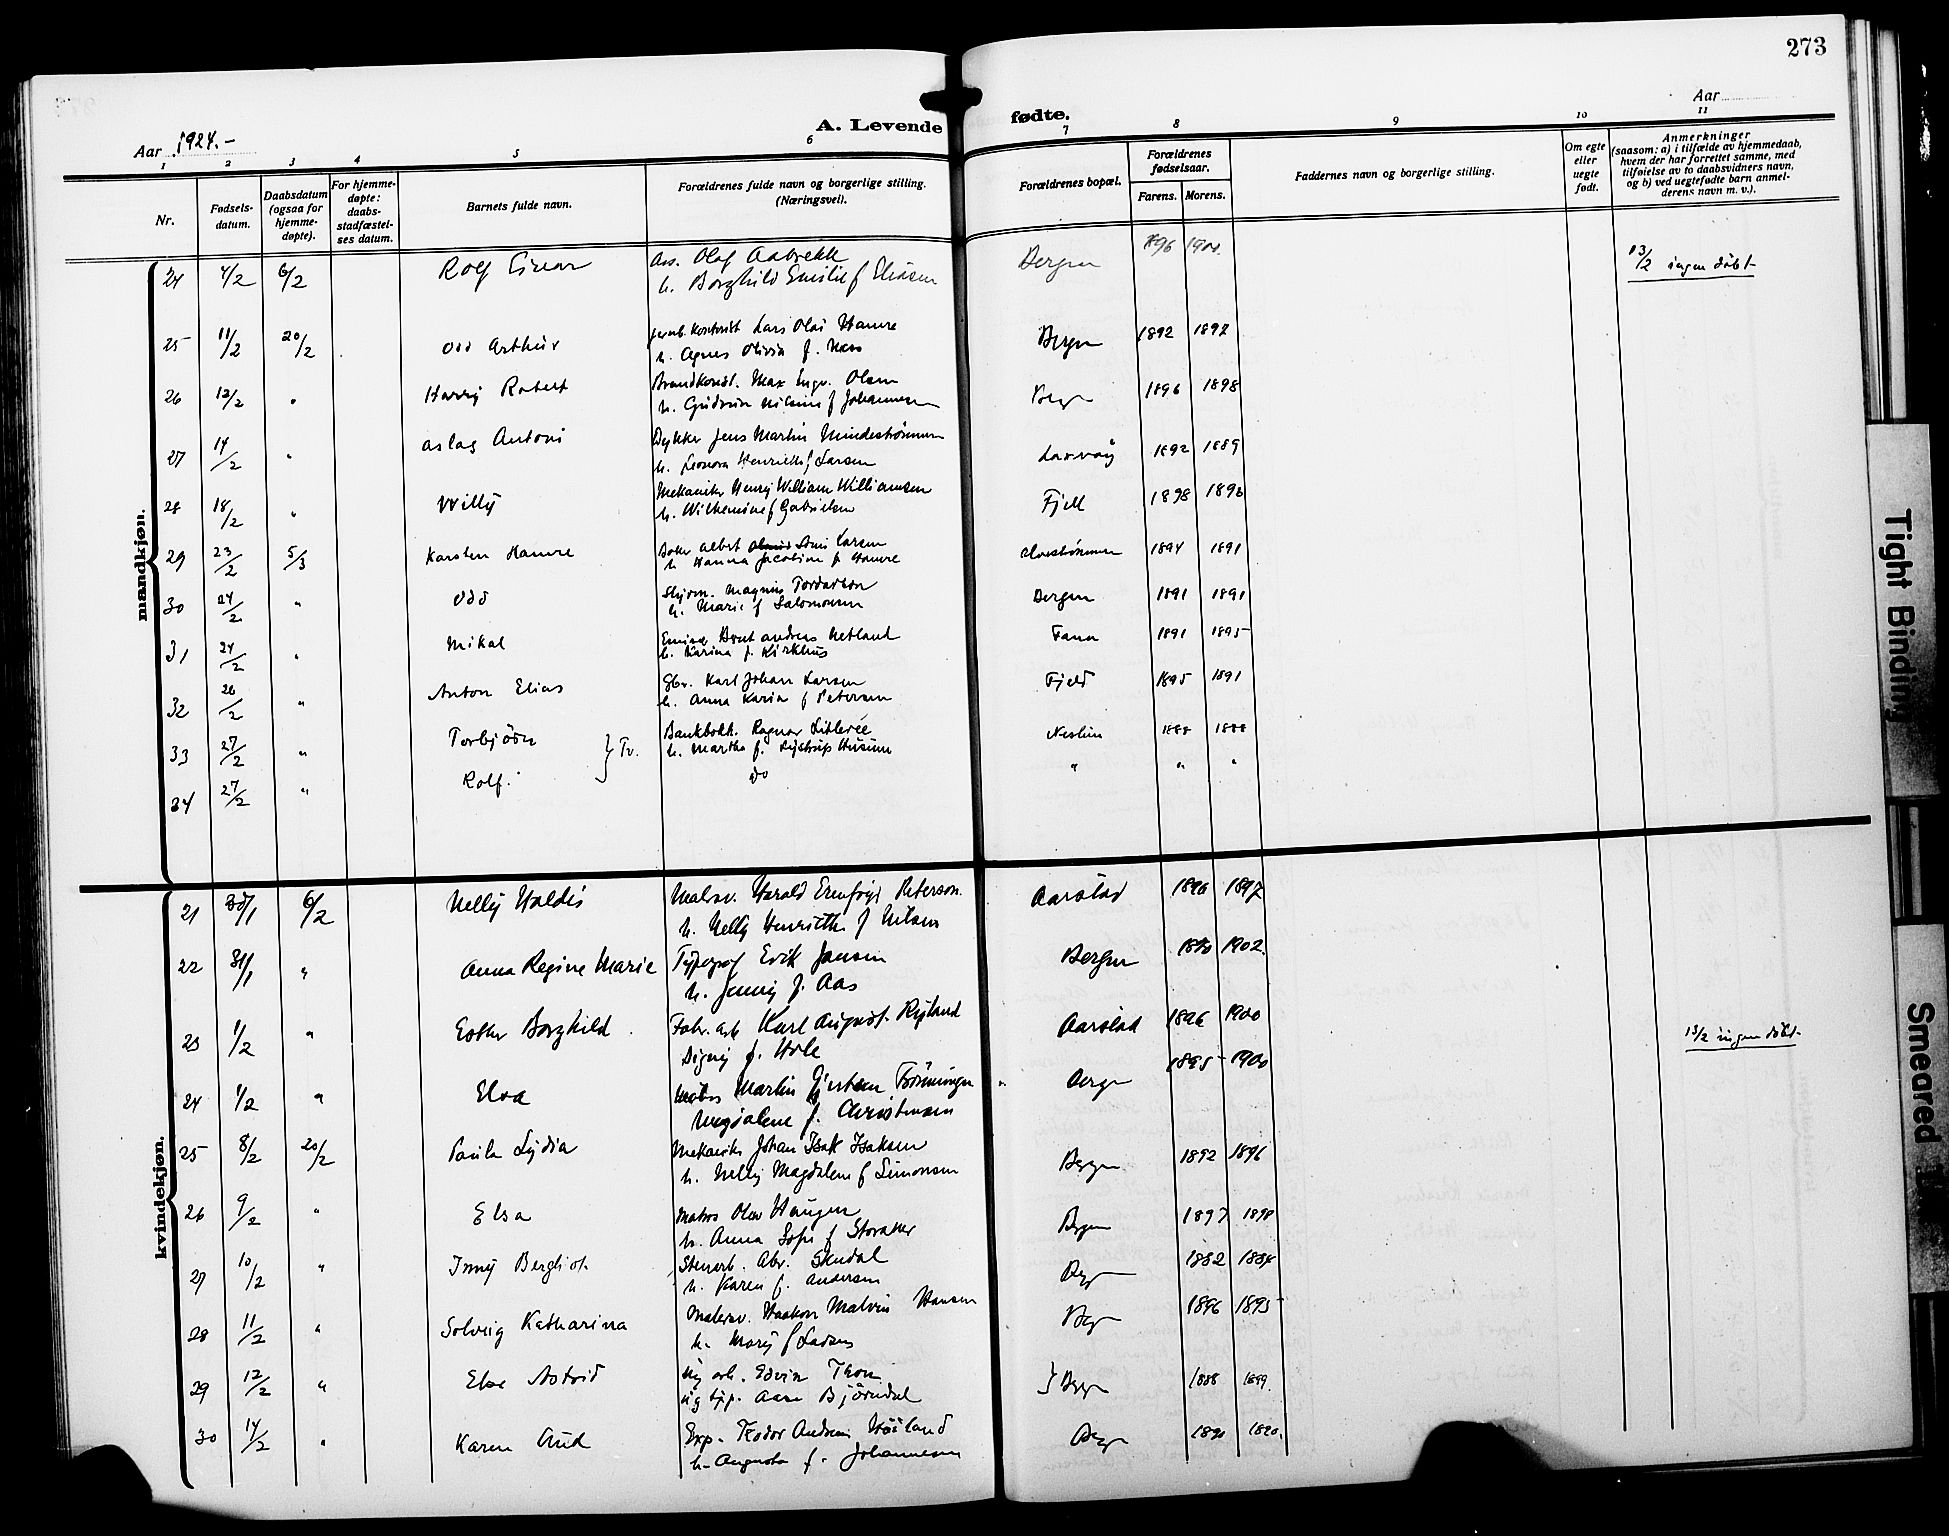 273
Aar 1924.-
A. Levende fødte.
Aar
1 2 3 4 5 6 7 8 9 10 11
Nr.
Fødsels-
datum.
Daabsdatum
(ogsaa for
hjemme-
døpte).
For hjemme-
døpte:
daabs-
stadfæstel-
ses datum.
Barnets fulde navn.
Forældrenes fulde navn og borgerlige stilling.
(Næringsvei).
Forældrenes bopæl.
Forældrenes
fødselsaar.
Farens. Morens.
Faddernes navn og borgerlige stilling.
Om egte
eller
uegte
født.
Anmerkninger
(saasom: a) i tilfælde av hjemmedaab,
hvem der har forrettet samme, med
tilføielse av to daabsvidners navn,
og b) ved uegtefødte barn anmel-
derens navn m. v.).
mandkjøn.
24 4/2 6/2 Rolf Einar Ass. Olaf Aabrekk Bergen 1896 1900 13/2 ingen döbt
h. Borghild Emilie f Eliasen
25 11/2 20/2 Odd Arthur Kontorist Lars Olai Hamre Bergen 1892 1892
h. Agnes Olivia f. Næss
26 13/2 " Harry Robert Brandkonst. Max Ingv. Olsen Bergen 1896 1898
h. Gudrun Nilsine f Johannesen
27 14/2 " Aslag Antoni Dykker Jens Martin Mindeströmmen Laxevaag 1892 1889
h. Leonora Henriette f Larsen
28 18/2 " Willy Mekaniker Henry William Williamsen Fjell 1898
h. Wilhelmine f Gabrielsen
29 23/2 5/3 Karsten Hamre Albert Larsen 1894 1891
h. Hanna Jacobine f. Hamre
30 24/2 " Odd Magnus Tordarson Bergen 1891 1891
h. Marie f Salomonsen
31 24/2 " Mikal Andreas Netland Fana 1891 1895
h. Karina f. Kirkhus
32 26/2 " Anton Elias Gbr. Karl Johan Larsen Fjeld 1895 1891
h. Anna Karin f Petersen
33 27/2 " Torbjörn } Tv. Bankbokh. Ragnar Nesttun 1888 1888
h. Martha f.
34 27/2 " Rolf. do " " "
kvindekjøn.
21 30/1 6/2 Nelly Haldis Malersv. Harald Peterson Aarstad 1896 1897
h. Nelly Henriette f Nilsen
22 31/1 " Anna Regine Marie Typograf Erik Jansen Bergen 1890 1902.
h. Jenny f. Aas
23 1/2 " Esther Borghild Fabr. arb Karl August Ryland Aarstad 1896 1900 13/2 ingen döbt.
Signy f. Hole
24 1/2 " Elsa Matros Martin Gjertsen Bergen 1895 1900
Magdalene f. Christensen
25 8/2 20/2 Paula Lydia Mekaniker Johan Isak Isaksen Bergen 1892 1896
h. Nelly Magdalene f Simonsen
26 9/2 " Elsa Matros Olav Haugen Bergen 1897 1898
h. Anna Sofie f Storaker
27 10/2 " Inny Bergliot Stenarb. Abr. Skudal Bergen 1882 1884
h. Karen f. Andersen
28 11/2 " Solveig Katharina Malersv. Haakon Malvin Hansen Bergen 1896 1895
h. Mary f Larsen
29 12/2 " Else Astrid arb. Edvin Thom } Bergen 1888 1899.
Björndal
30 14/2 " Karen Aud Exp. Teodor Andreas Höiland Bergen 1890 1890.
h. Augusta f. Johannesen
Tight Binding
Smeared